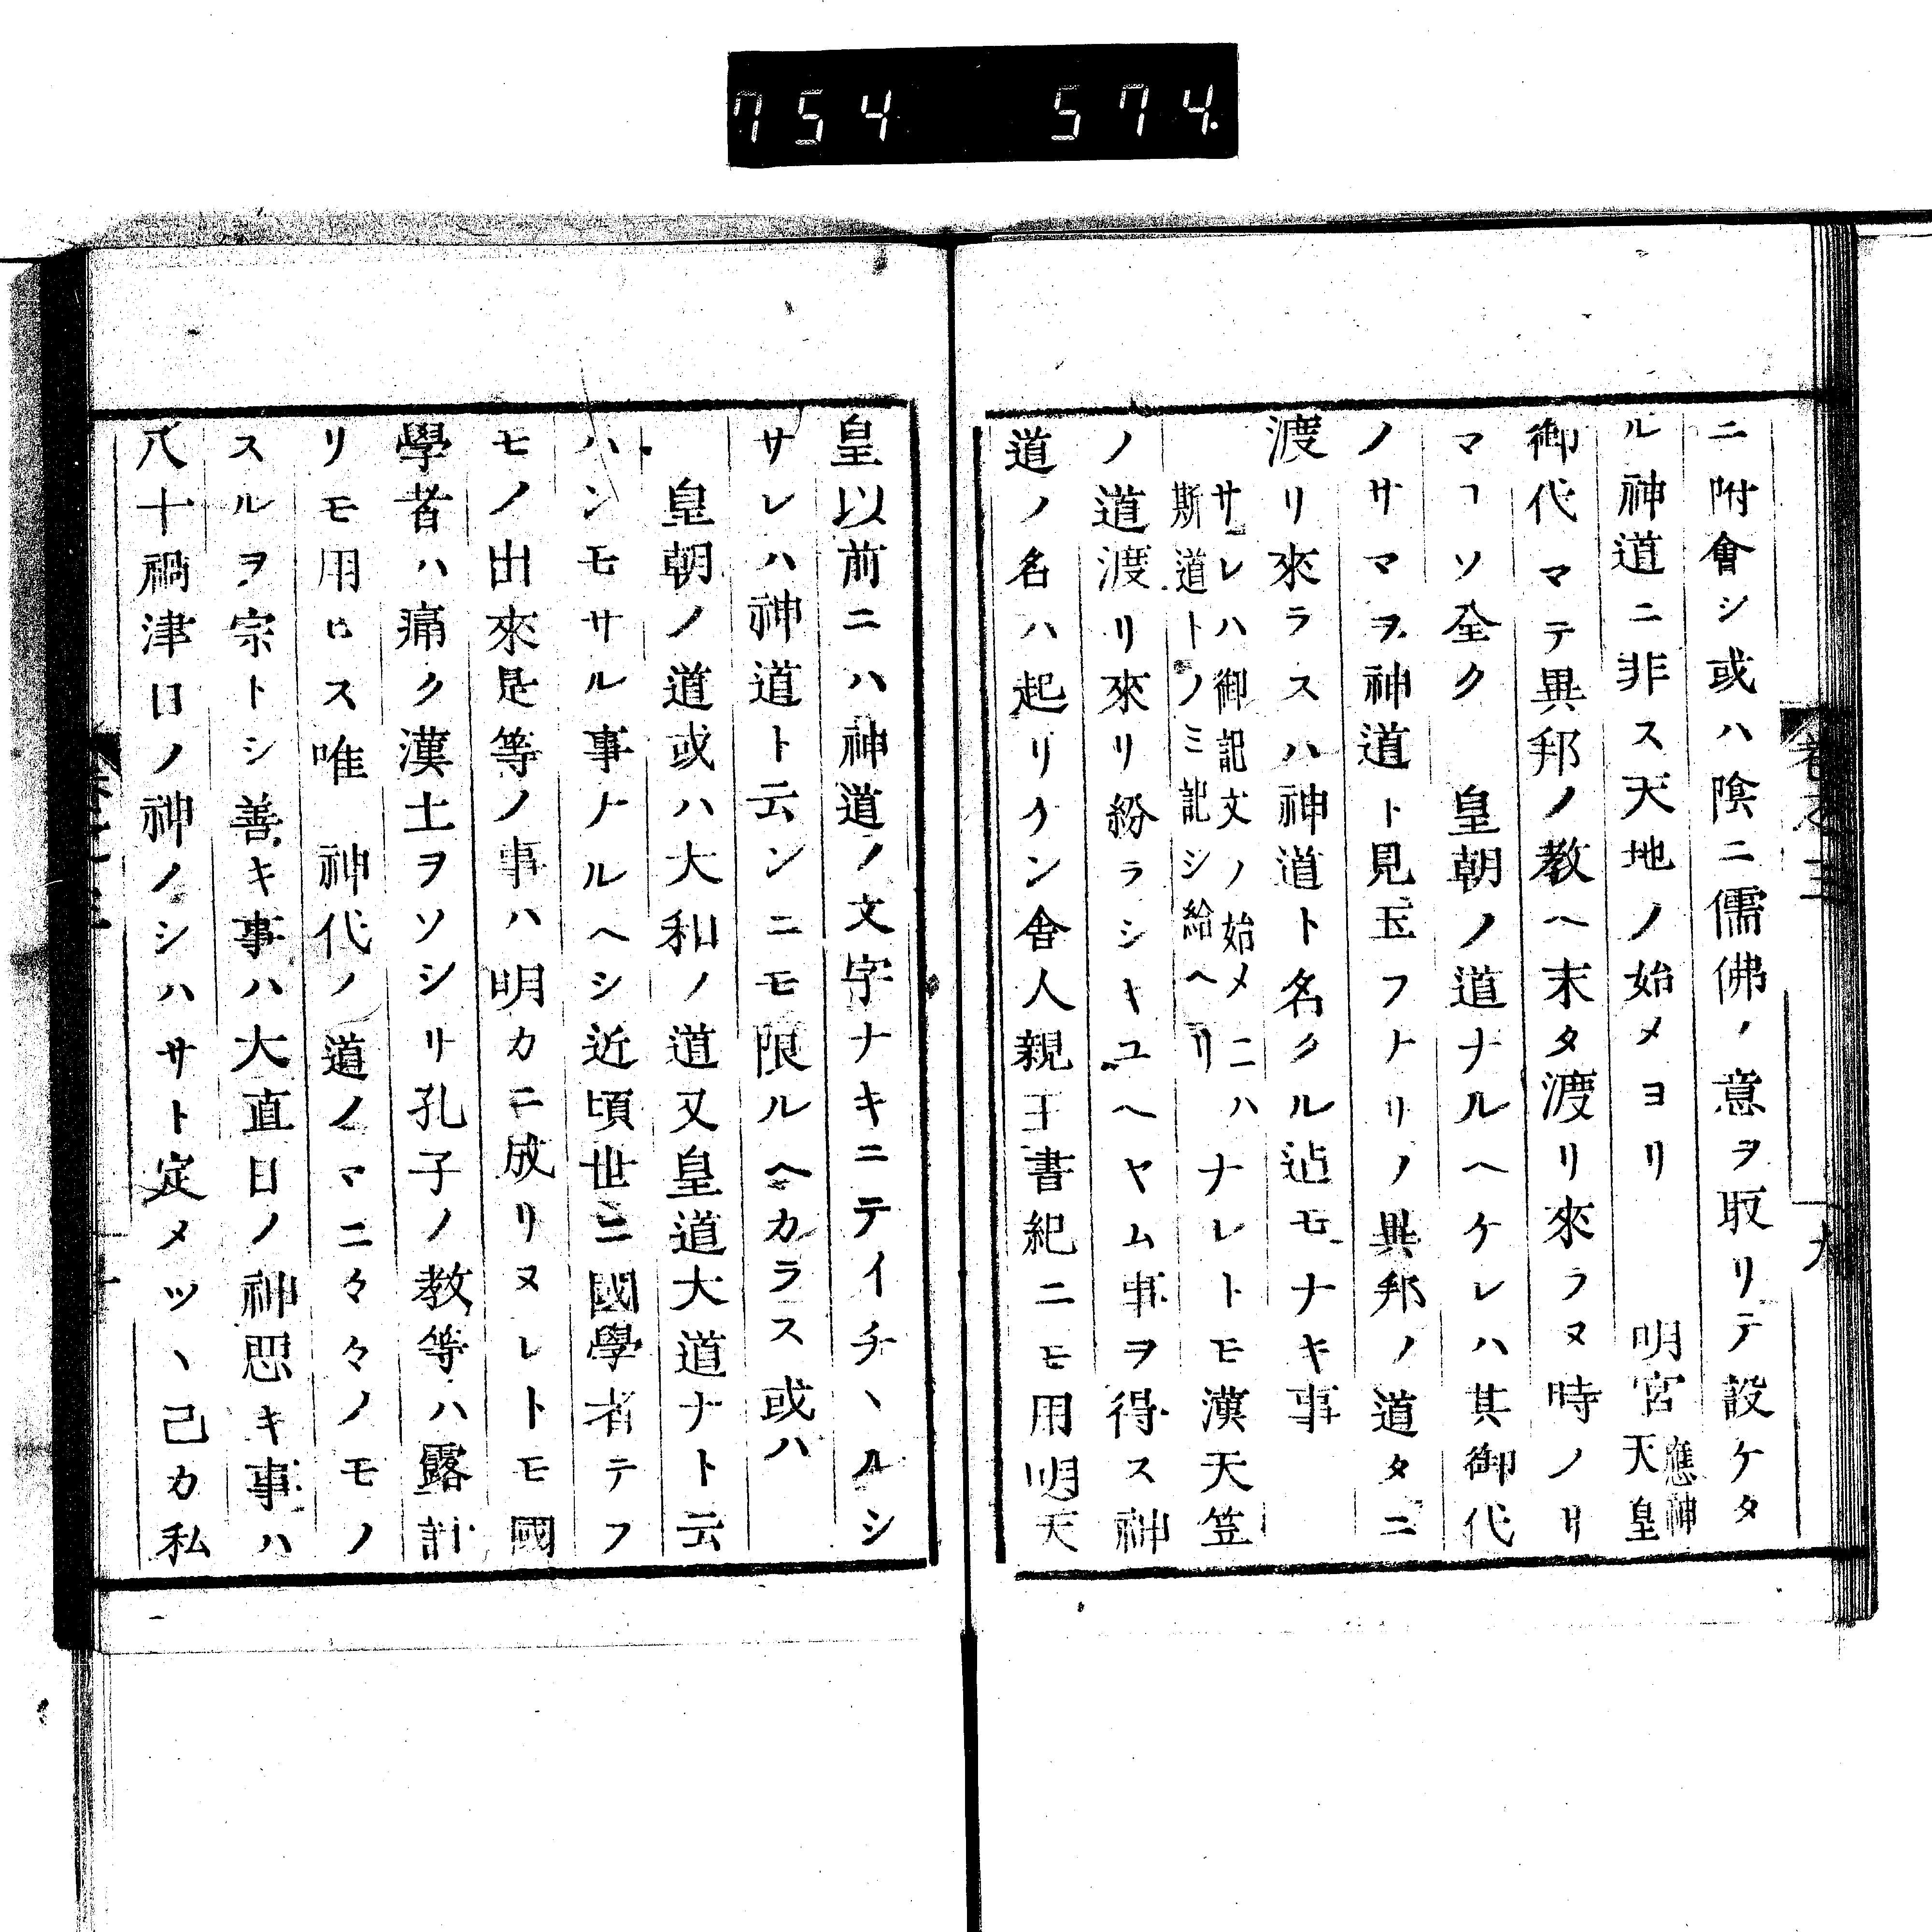 754 574.
ニ附會シ或ハ陰ニ儒佛ノ意ヲ取リテ設ケタ
ル神道ニ非ス天地ノ始メヨリ 明宮應神天皇
御代マテ異邦ノ教ヘ末タ渡リ來ラヌ時ノリ
マヿソ全ク 皇朝ノ道ナルヘケレハ其御代
ノサマヲ神道ト見玉フナリノ異邦ノ道タニ
渡リ來ラスハ神道ト名クル迠モナキ事
サレハ御記文ノ始メニハ
斯道トノミ記シ給ヘリ
ナレトモ漢天笠
ノ道渡リ來リ紛ラシキユヘヤム事ヲ得ス神
道ノ名ハ起リケン舍人親王書紀ニモ用明天
皇以前ニハ神道ノ文字ナキニテイチヽルシ
サレハ神道ト云ンニモ限ルヘカラス或ハ
皇朝ノ道或ハ大和ノ道又皇道大道ナト云
ハンモサル事ナルヘシ近頃世ニ國學者テフ
モノ出來是等ノ事ハ明カニ成リヌレトモ國
學者ハ痛ク漢土ヲソシリ孔子ノ教等ハ露計
リモ用ヒス唯 神代ノ道ノマニ々々ノモノ
スルヲ宗トシ善キ事ハ大直日ノ神惡キ事ハ
八十禍津日ノ神ノシハサト定メツヽ己カ私